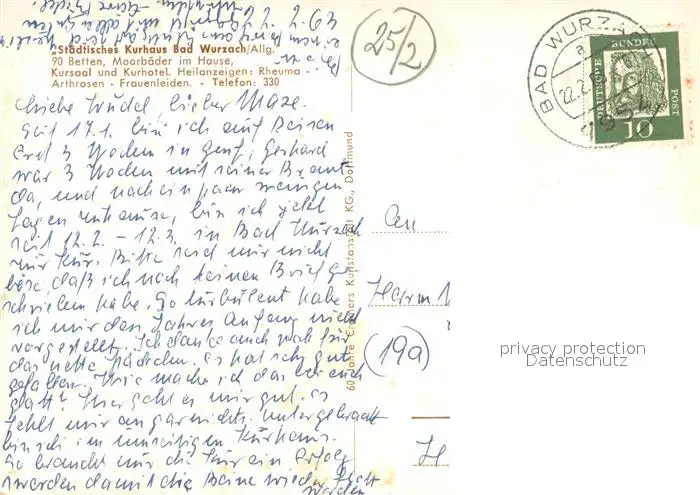 25/2
Städtisches Kurhaus Bad Wurzach/Allg.
90 Betten, Moorbäder im Hause,
Kursaal und Kurhotel. Heilanzeigen: Rheuma -
Arthrosen - Frauenleiden. - Telefon: 330
Liebe Trudel, lieber Maxe.
Seit 17.1. bin ich auf Reisen
Erst 3 Wochen in Genf, Gerhard
war 3 Wochen mit seiner Braut
da, und nach ein paar wenigen
Tagen zuhause, bin ich jetzt
seit 12.2. - 12.3. in Bad Wurzach
zur Kur. Bitte seid mir nicht
böse daß ich noch keinen Brief ge-
schrieben habe. So turbulent habe
ich mir den Jahres Anfang nicht
vorgestellt. Ich danke auch noch für
das nette Päckchen. Es hat sich gut
gefallen. Wie mache ich das bei euch
glatt? Hier geht es mir gut. Es
fehlt mir an gar nichts. Untergebracht
bin ich im umseitigen Kurhaus.
So braucht nur die Kur ein Erfolg
werden damit die Beine wieder glatt
werden
60 Jahre Cramers Kunstanstalt KG., Dortmund
BAD WURZACH
a
22.2.
DEUTSCHE BUNDESPOST
10
An
Herrn
(19a)
H
privacy protection
Datenschutz